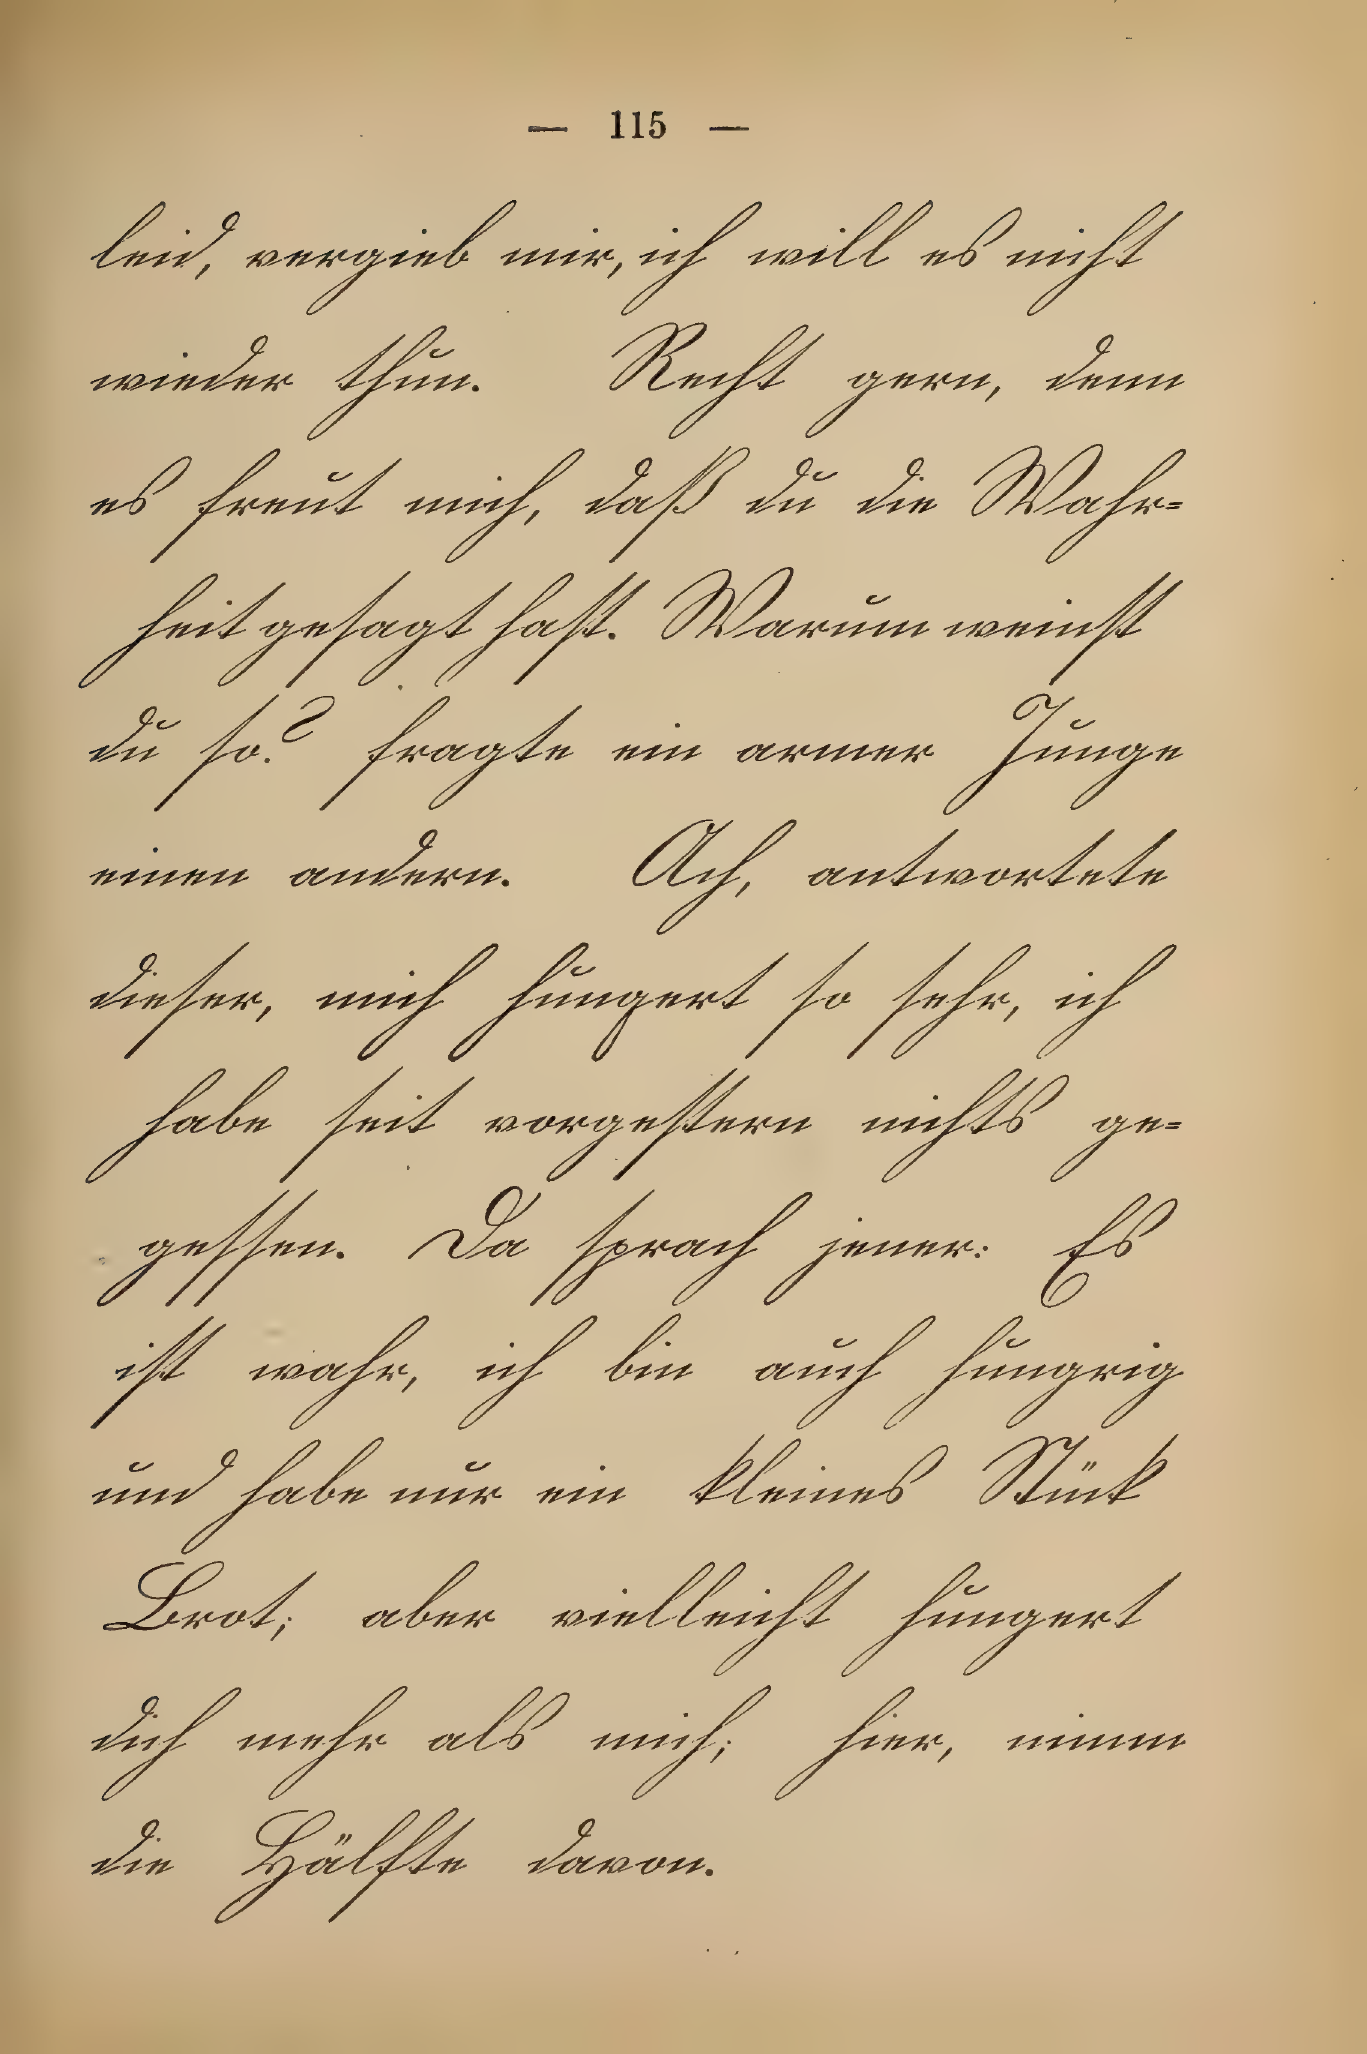 — 115 —
leid, vergieb mir, ich will es nicht
wieder thun. Recht gern, denn
es freut mich, daß du die Wahr=
heit gesagt hast. Warum weinst
du so? fragte ein armer Junge
einen andern. Ach, antwortete
dieser, mich hungert so sehr, ich
habe seit vorgestern nichts ge=
gessen. Da sprach jener: Es
ist wahr, ich bin auch hungrig
und habe nur ein kleines Stück
Brot; aber vielleicht hungert
dich mehr als mich; hier, nimm
die Hälfte davon.